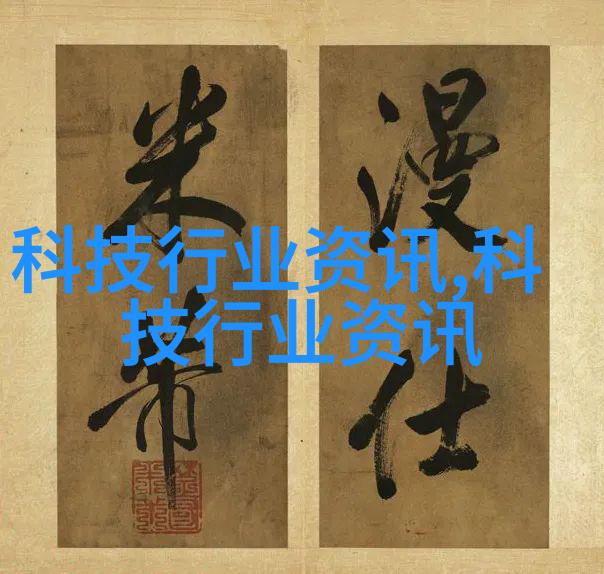 科技行业资讯,科
技行业资讯
漫仕
米芾